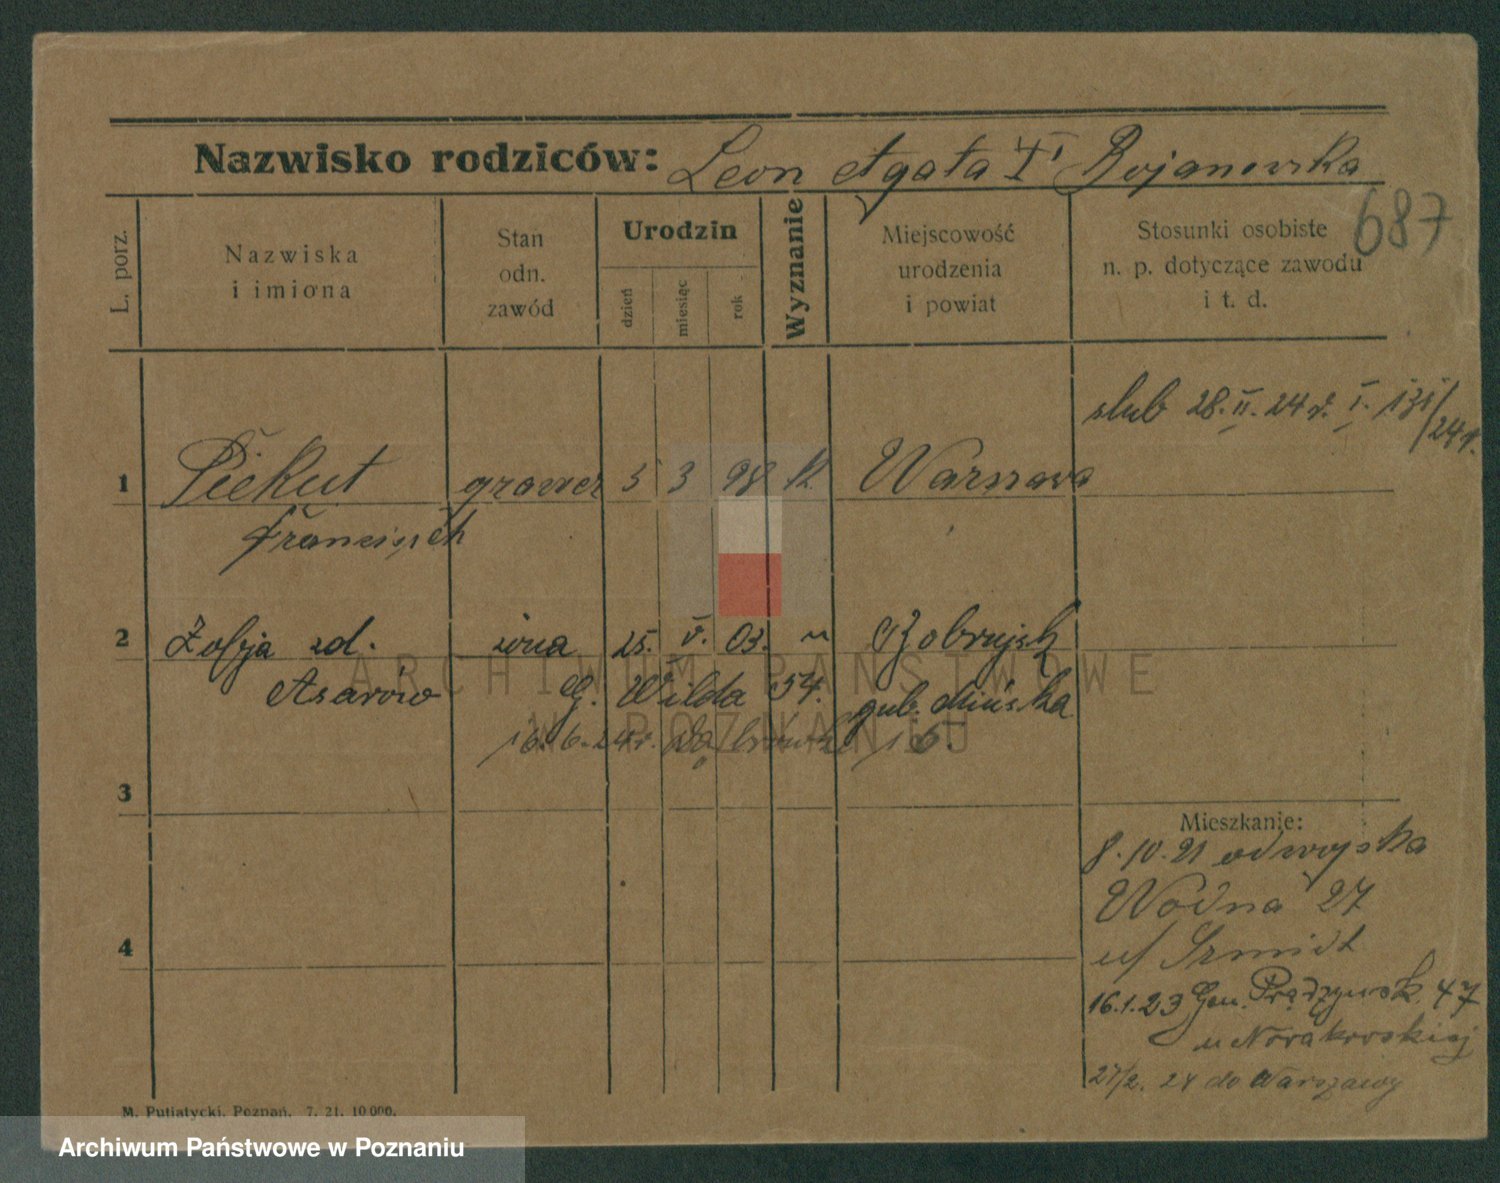 Nazwisko rodziców: Leon Agata Bojanowska
687
L. porz.
Nazwiska
i imiona
Stan
odn.
zawód
Urodzin
dzień
miesiąc
rok
Wyznanie
Miejscowość
urodzenia
i powiat
Stosunki osobiste
n. p. dotyczące zawodu
i t. d.
ślub 28.II.24r. I.
24r.
1 Piekut grawer 5 3 98 Warszawa
Franciszek
2 Zofja zd. żona 25. V. 03. Bobrujsk
Asarów G. Wilda 54. gub. Mińska
16.6.24r. 16.
3
Mieszkanie:
8.10.21 od wojska
Wodna 27
u/ Szmidt
4
16.1.23 Gen. Prądzyńsk. 47
u Nowakowskiej
27/2. 24 do Warszawy
M. Putiatycki, Poznań. 7. 21. 10 000.
ARCHIWUM PAŃSTWOWE
W POZNANIU
Archiwum Państwowe w Poznaniu